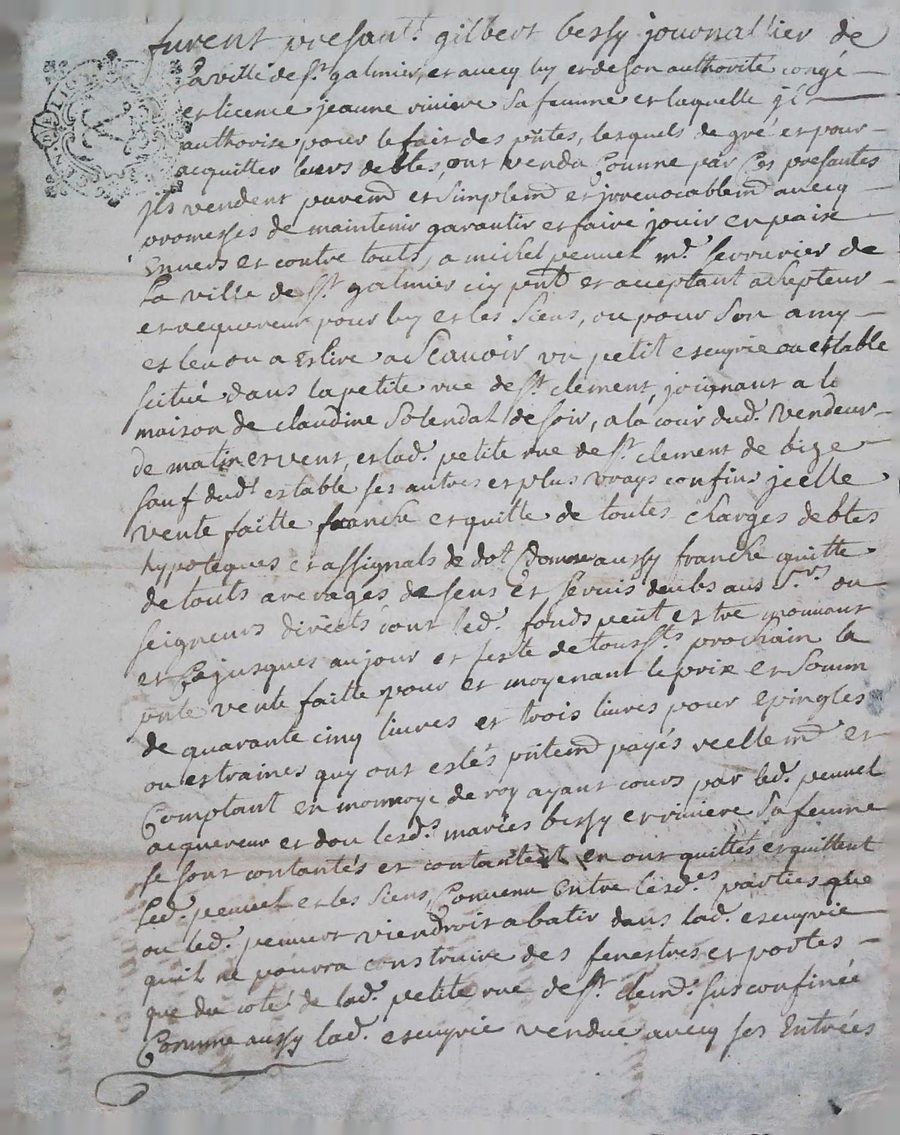 furent presant.^t gilbert bessy journallier de
la ville de s^t galmier, et avecq luy et de son authorité congé
et licence jeanne riviere sa femme et laquelle il
authorise pour le fait des pñtes, lesquels de gré et pour
acquitter leurs debtes, ont vendu Comme par Ces presantes
ils vendent purem^d et simplem^d et jrrevocablem^d avecq
promesses de maintenir garantir et faire jouir en paix
Envers et contre touts, a michel peuvel m^d. serrurier de
La ville de s^t galmier icy pnt et acceptant achepteur
et acquereur pour luy et les siens, ou pour son amy
esleu ou a Eslire a Scavoir un petit escuyrie ou estable
scitué dans la petite rue de s^t clement, joignant a la
maison de claudine Solendal de soir, a la cour dud. vendeur
de matin et vent, et lad. petite rue de s^t. clement de bize
sauf dud^t estable ses autres et plus vrays confins jcelle
vente faitte franche et quitte de toutes charges debtes
hypoteques et assignals de dot Comme aussy franche quitte
de touts arerages de sens et servis deubs aus S^rs ou
seigneurs directs dont led. fonds peut estre mouvant
et Ce jusques au jour et feste de touss^ts prochain la
pnte vente faitte pour et moyenant le prix et Somm
de quarante cinq livres et trois livres pour epingles
ou estraines quy ont estés pñtem^d payés reellem^d et
Comptant en monnoye de roy ayant cours par led. peuvel
acquereur et dou lesd.^s mariés bessy et riviere sa femme
se sont contantés et contantent en ont quittés et quittent
led. peuvel et les siens, Convenu Entre lesd.^es parties que
ou led. peuvel viendroit a batir dans lad. escuyrie
quil ne pourra construire des fenestres et portes
que du coté de lad. petite rue de s^t. clem^d. sus confinée
Comme aussy lad. escuyrie vendue avecq ses Entrées